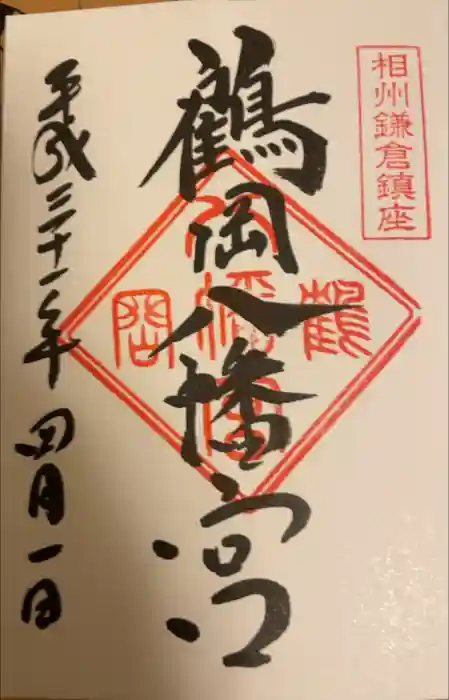 相州鎌倉鎮座
鶴岡八幡宮
鶴
八幡宮
岡
平成三十一年四月一日